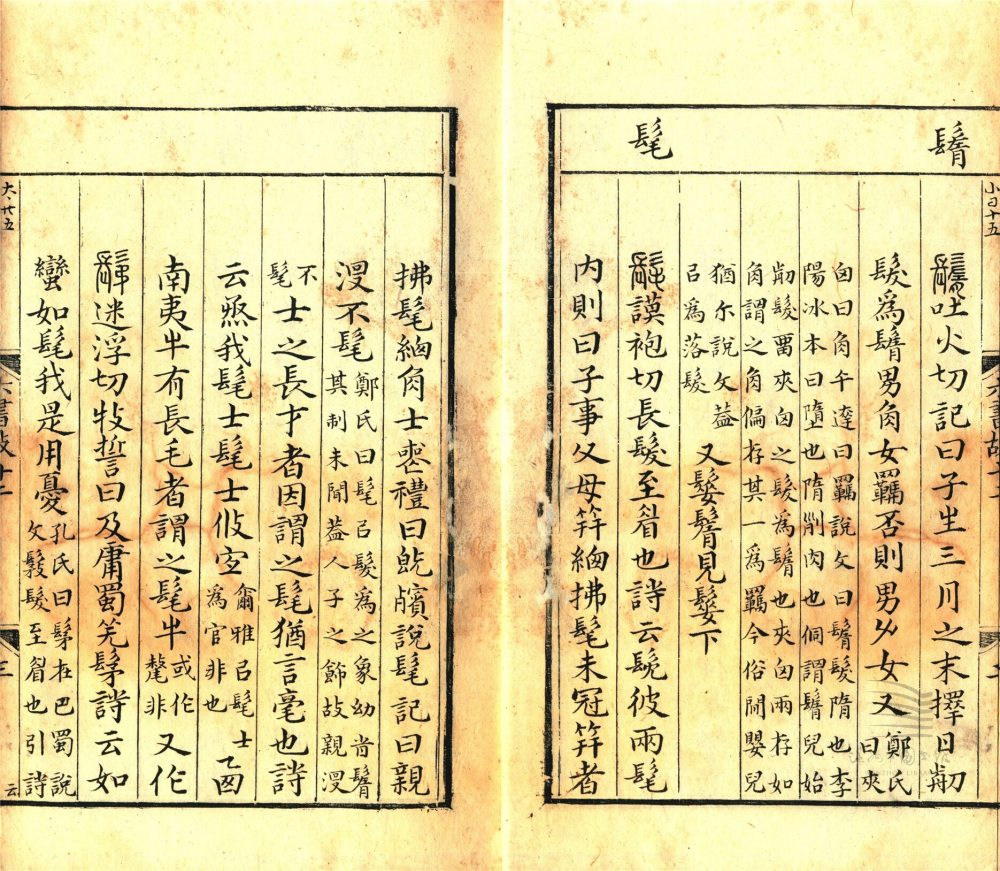 鬌
髦
鬌吐火切記曰子生三月之末擇日剪
髮爲鬌男角女羈否則男𠂇女又
鄭氏
曰夾
囟曰角午達曰羈說文曰鬌髮隋也李
陽冰本曰墮也隋削肉也侗謂鬌兒始
剪髮畱夾囟之髮爲鬌也夾囟兩存如
角謂之角偏存其一爲羈今俗閒嬰兒
猶尔說文葢
㠯爲落髮
又鬘鬌見鬘下
髦謨袍切長髮至眉也詩云髧彼兩髦
內則曰子事父母笄緫拂髦未冠笄者
拂髦緫角士喪禮曰旣殯說髦記曰親
沒不髦
鄭氏曰髦㠯髮爲之象幼時鬌
其制未聞葢人子之飾故親沒
不
髦
士之長才者因謂之髦猶言毫也詩
云烝我髦士髦士攸宜
爾雅㠯髦士
爲官非也
西
南夷牛有長毛者謂之髦牛
或作
氂非
又作
髳迷浮切牧誓曰及庸蜀羌髳詩云如
蠻如髦我是用憂
孔氏曰髳在巴蜀說
文髮至眉也引詩
大廿五
六書故十二
三
云